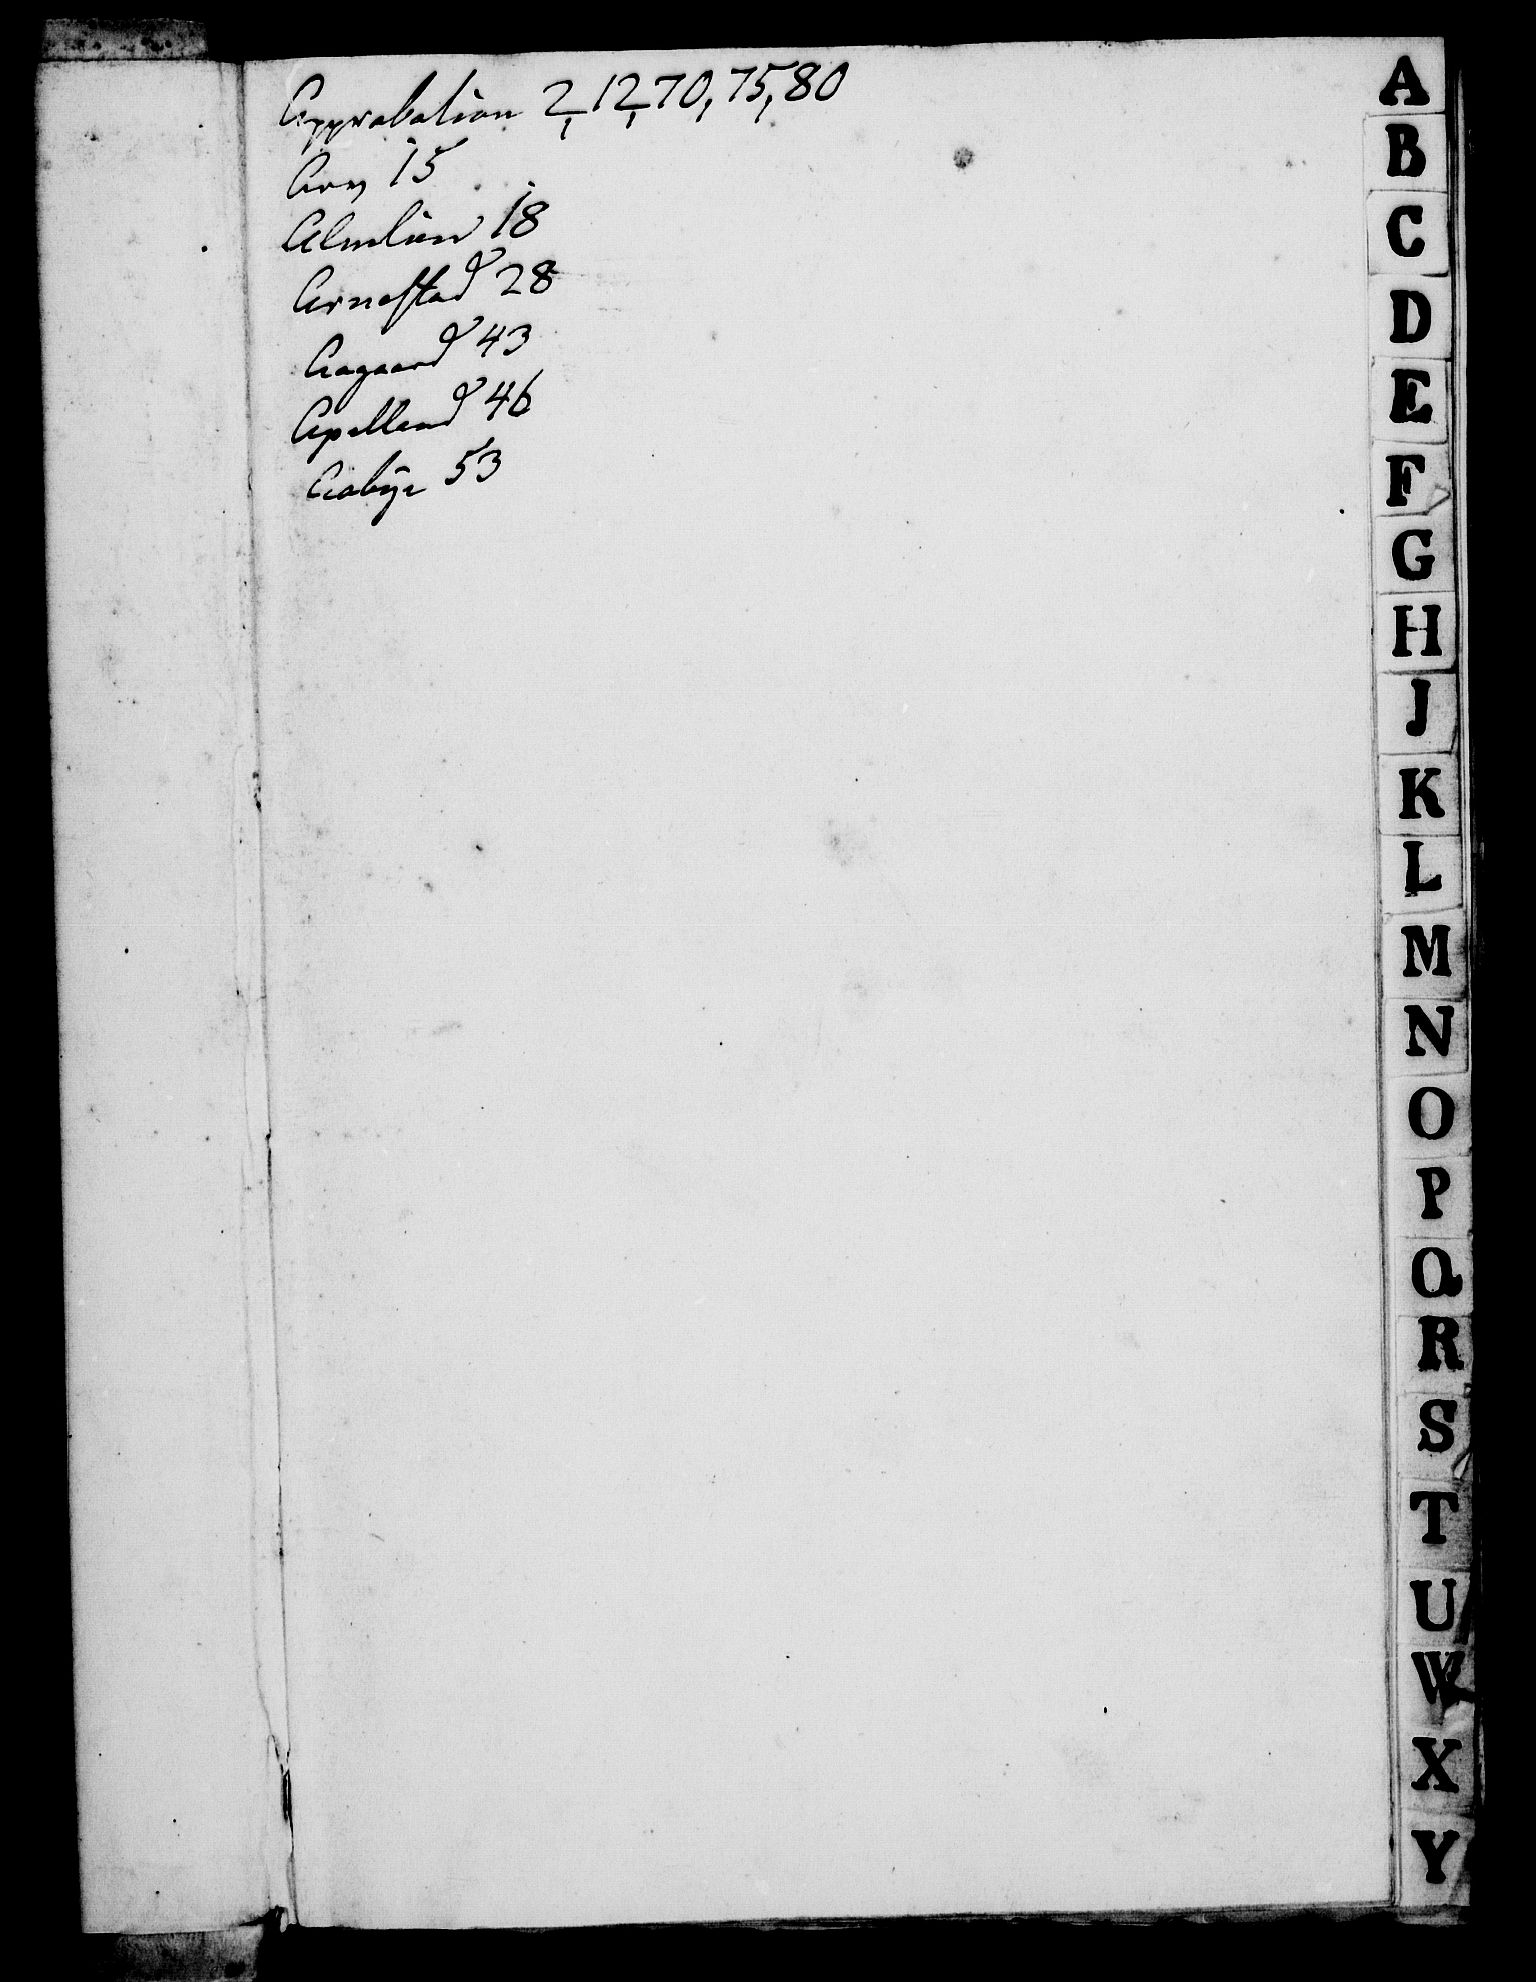 Approbation 2, 12, 70, 75, 80
Arn 15
Almlien 18
Arnestad 28
Aagaard 43
Apelland 46
Aabÿe 53
A
B
C
D
E
F
G
H
J
K
L
M
N
O
P
Q
R
S
T
U
W
X
Y